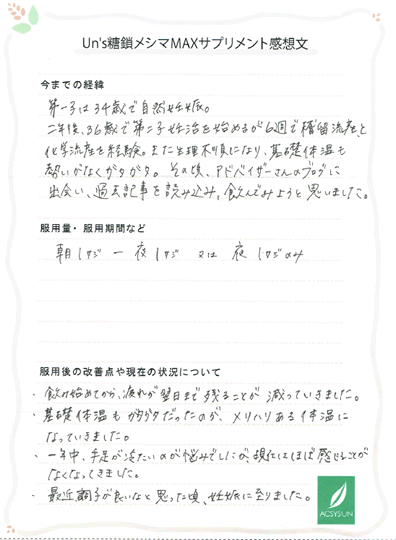 Un's糖鎖メシマMAXサプリメント感想文
今までの経緯
第一子は34歳で自然妊娠。
二年後、36歳で第二子妊活を始めるが6週で稽留流産と
化学流産を経験。また生理不順になり、基礎体温も
勢いがなくガタガタ。その頃、アドバイザーさんのブログに
出会い、過去記事を読み込み、飲んでみようと思いました。
服用量・服用期間など
朝1サジ ー 夜1サジ 又は 夜1サジのみ
服用後の改善点や現在の状況について
・飲み始めてから、疲れが翌日まで残ることが減っていきました。
・基礎体温もガタガタだったのが、メリハリある体温に
なっていきました。
・一年中、手足が冷たいのが悩みでしたが、現在はほぼ感じることが
なくなってきました。
・最近調子が良いなと思った頃、妊娠に至りました。
ACSYSUN